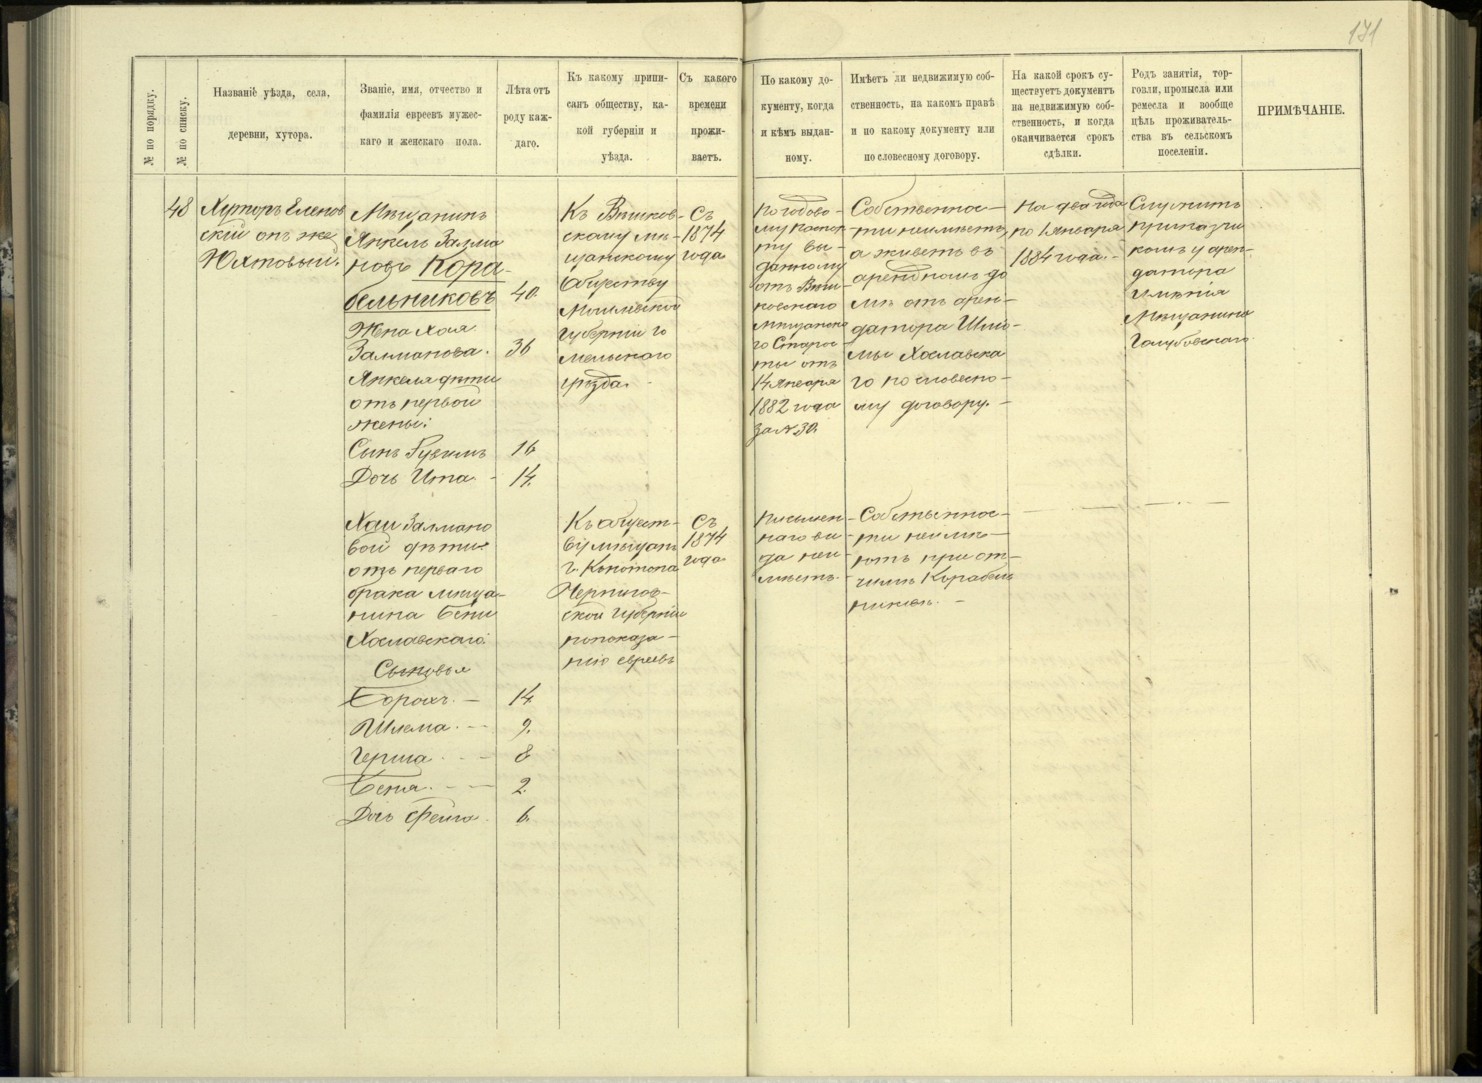 171
№ по порядку.
№ по списку.
Названіе уѣзда, села,
деревни, хутора.
Званіе, имя, отчество и
фамилія евреевъ мужес-
каго и женскаго пола.
Лѣта отъ
роду каж-
даго.
Къ какому припи-
санъ обществу, ка-
кой губерніи и
уѣзда.
Съ какого
времени
прожи-
ваетъ.
По какому до-
кументу, когда
и кѣмъ выдан-
ному.
Имѣетъ ли недвижимую соб-
ственность, на какомъ правѣ
и по какому документу или
по словесному договору.
На какой срокъ су-
ществуетъ документъ
на недвижимую соб-
ственность, и когда
оканчивается срокъ
сдѣлки.
Родъ занятія, тор-
говли, промысла или
ремесла и вообще
цѣль проживатель-
ства въ сельскомъ
поселеніи.
ПРИМѢЧАНІЕ.
48
Хуторъ Еленов
скій онъ же
Юхтовый.
Мѣщанинъ
Янкель Залма
новъ Кора-
бельниковъ 40.
Жена Хая
Залманова. 36
Янкеля дѣти
отъ первой
жены:
Сынъ Рувимъ 16
Дочь Ита - 14.
Къ Вѣтков-
скому мѣ-
щанскому
Обществу
Могилевской
губерніи Го
мельского
уѣзда.
Съ
1874
года
По годово-
му паспор
ту вы-
данному
отъ Вѣт-
ковскаго
Мѣщанска
го Старос-
ты отъ
14 Января
1882 года
за № 30.
Собственнос-
ти неимѣетъ
а живетъ въ
арендномъ до
мѣ отъ арен-
датора Шлio-
мы Хославска
го по словесно-
му договору. -
На два года
по 1 Января
1884 года. -
Служитъ
прикащи
комъ у арен-
датора
имѣнія
Мѣщанина
Голубовскаго
Хаи Залмано
вой дѣти
отъ перваго
брака мѣща-
нина Бени
Хославскаго:
Сыновья
Борохъ. - 14.
Шлема. - 9.
Герша. - 8
Беня. - 2.
Дочь Фейга. 6.
Къ общест-
ву мѣщанъ
г. Конотопа
Чернигов-
ской губерніи
по показа-
нію евреевъ
Съ
1874
года
Письмен-
наго ви-
да неи-
мѣетъ.
Собственнос-
ти неимѣ-
ютъ при от-
чимѣ Корабель
никовѣ. -